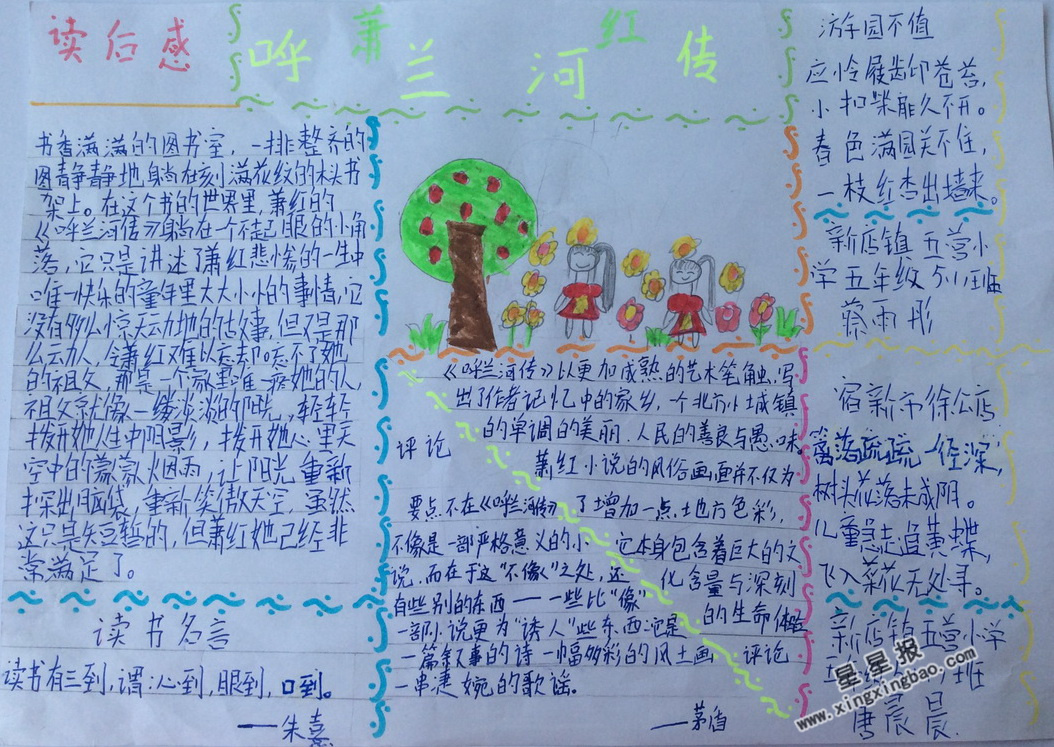 读后感
呼萧兰河红传
书香满满的图书室，一排整齐的
图静静地躺在刻满花纹的木头书
架上。在这个书的世界里，萧红的
《呼兰河传》躺在一个不起眼的小角
落，它只是讲述了萧红悲惨的一生中
唯一快乐的童年里大大小小的事情，它
没有多么惊天动地的故事，但又是那
么动人，令萧红难以忘却忘不了她
的祖父，那是一个家里唯一疼她的人
祖父就像一缕淡淡的阳光，轻轻
拨开她人生中阴影，拨开她心里天
空中的蒙蒙烟雨，让阳光重新
探出脑袋，重新笑傲天空，虽然
这只是短暂的，但萧红她已经非
常满足了。
读书名言
读书有三到，谓：心到，眼到，口到。
——朱熹
《呼兰河传》以更加成熟的艺术笔触，写
出了作者记忆中的家乡，一个北方小城镇
的单调的美丽、人民的善良与愚昧
萧红小说的风俗画面并不仅为
了增加一点土地方色彩，
它本身包含着巨大的文
化含量与深刻
的生命体验
评论
评论
要点不在《呼兰河传》
不像是一部严格意义的小
说，而在于这“不像”之处，还
有些别的东西——一些比“像”
一部小说更为“诱人”些东西：它是
一篇叙事的诗一幅多彩的风土画
一串凄婉的歌谣。
——茅盾
游园不值
应怜屐齿印苍苔，
小扣柴扉久不开。
春色满园关不住，
一枝红杏出墙来。
新店镇五营小
学五年级5(1)班
蔡雨彤
宿新市徐公店
篱落疏疏一径深，
树头花落未成阴。
儿童急走追黄蝶，
飞入菜花无处寻。
新店镇五营小学
班
唐晨晨
星星报
www.xingxingbao.com